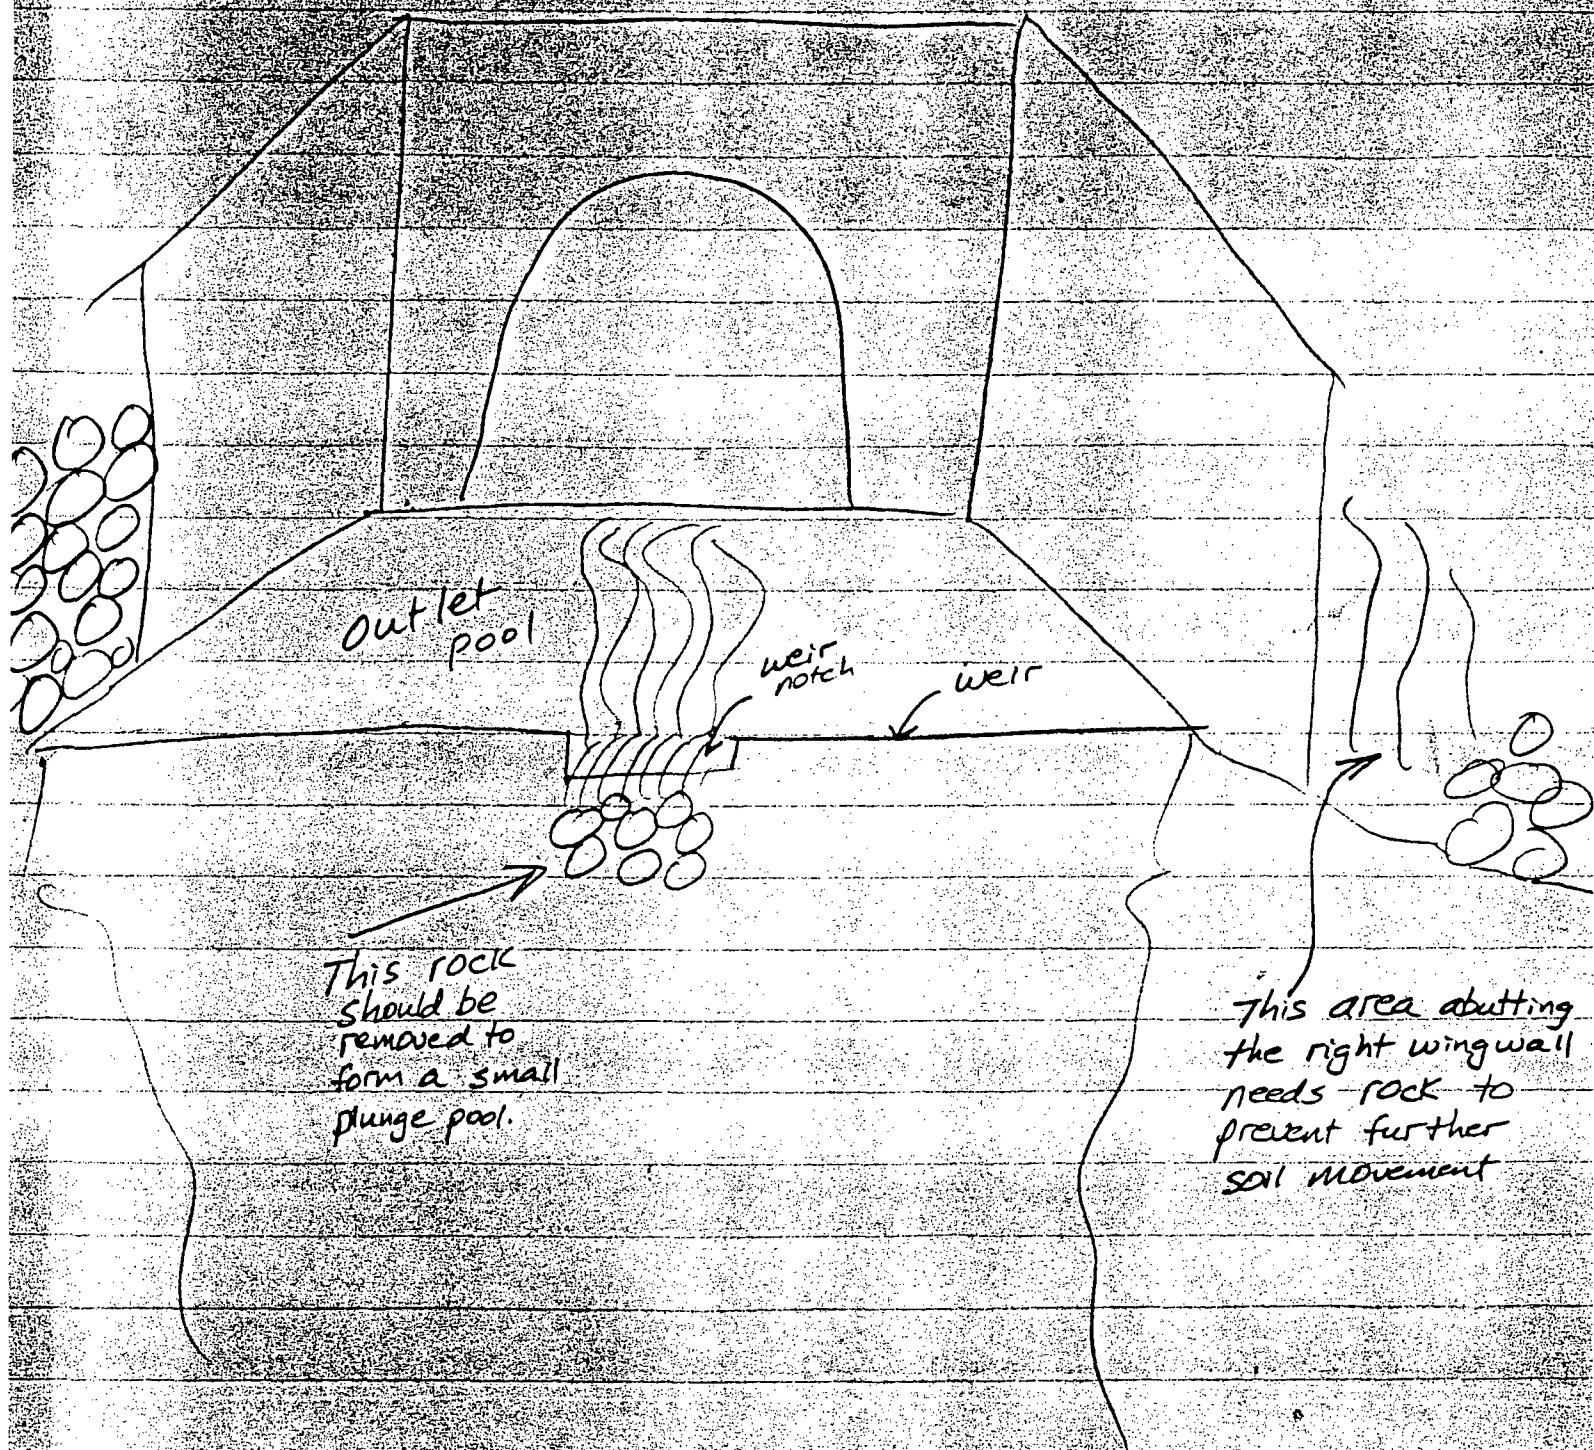 Outlet
pool
weir
notch
weir
This rock
should be
removed to
form a small
plunge pool.
This area abutting
the right wingwall
needs rock to
prevent further
soil movement